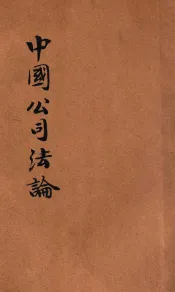 中國公司法論